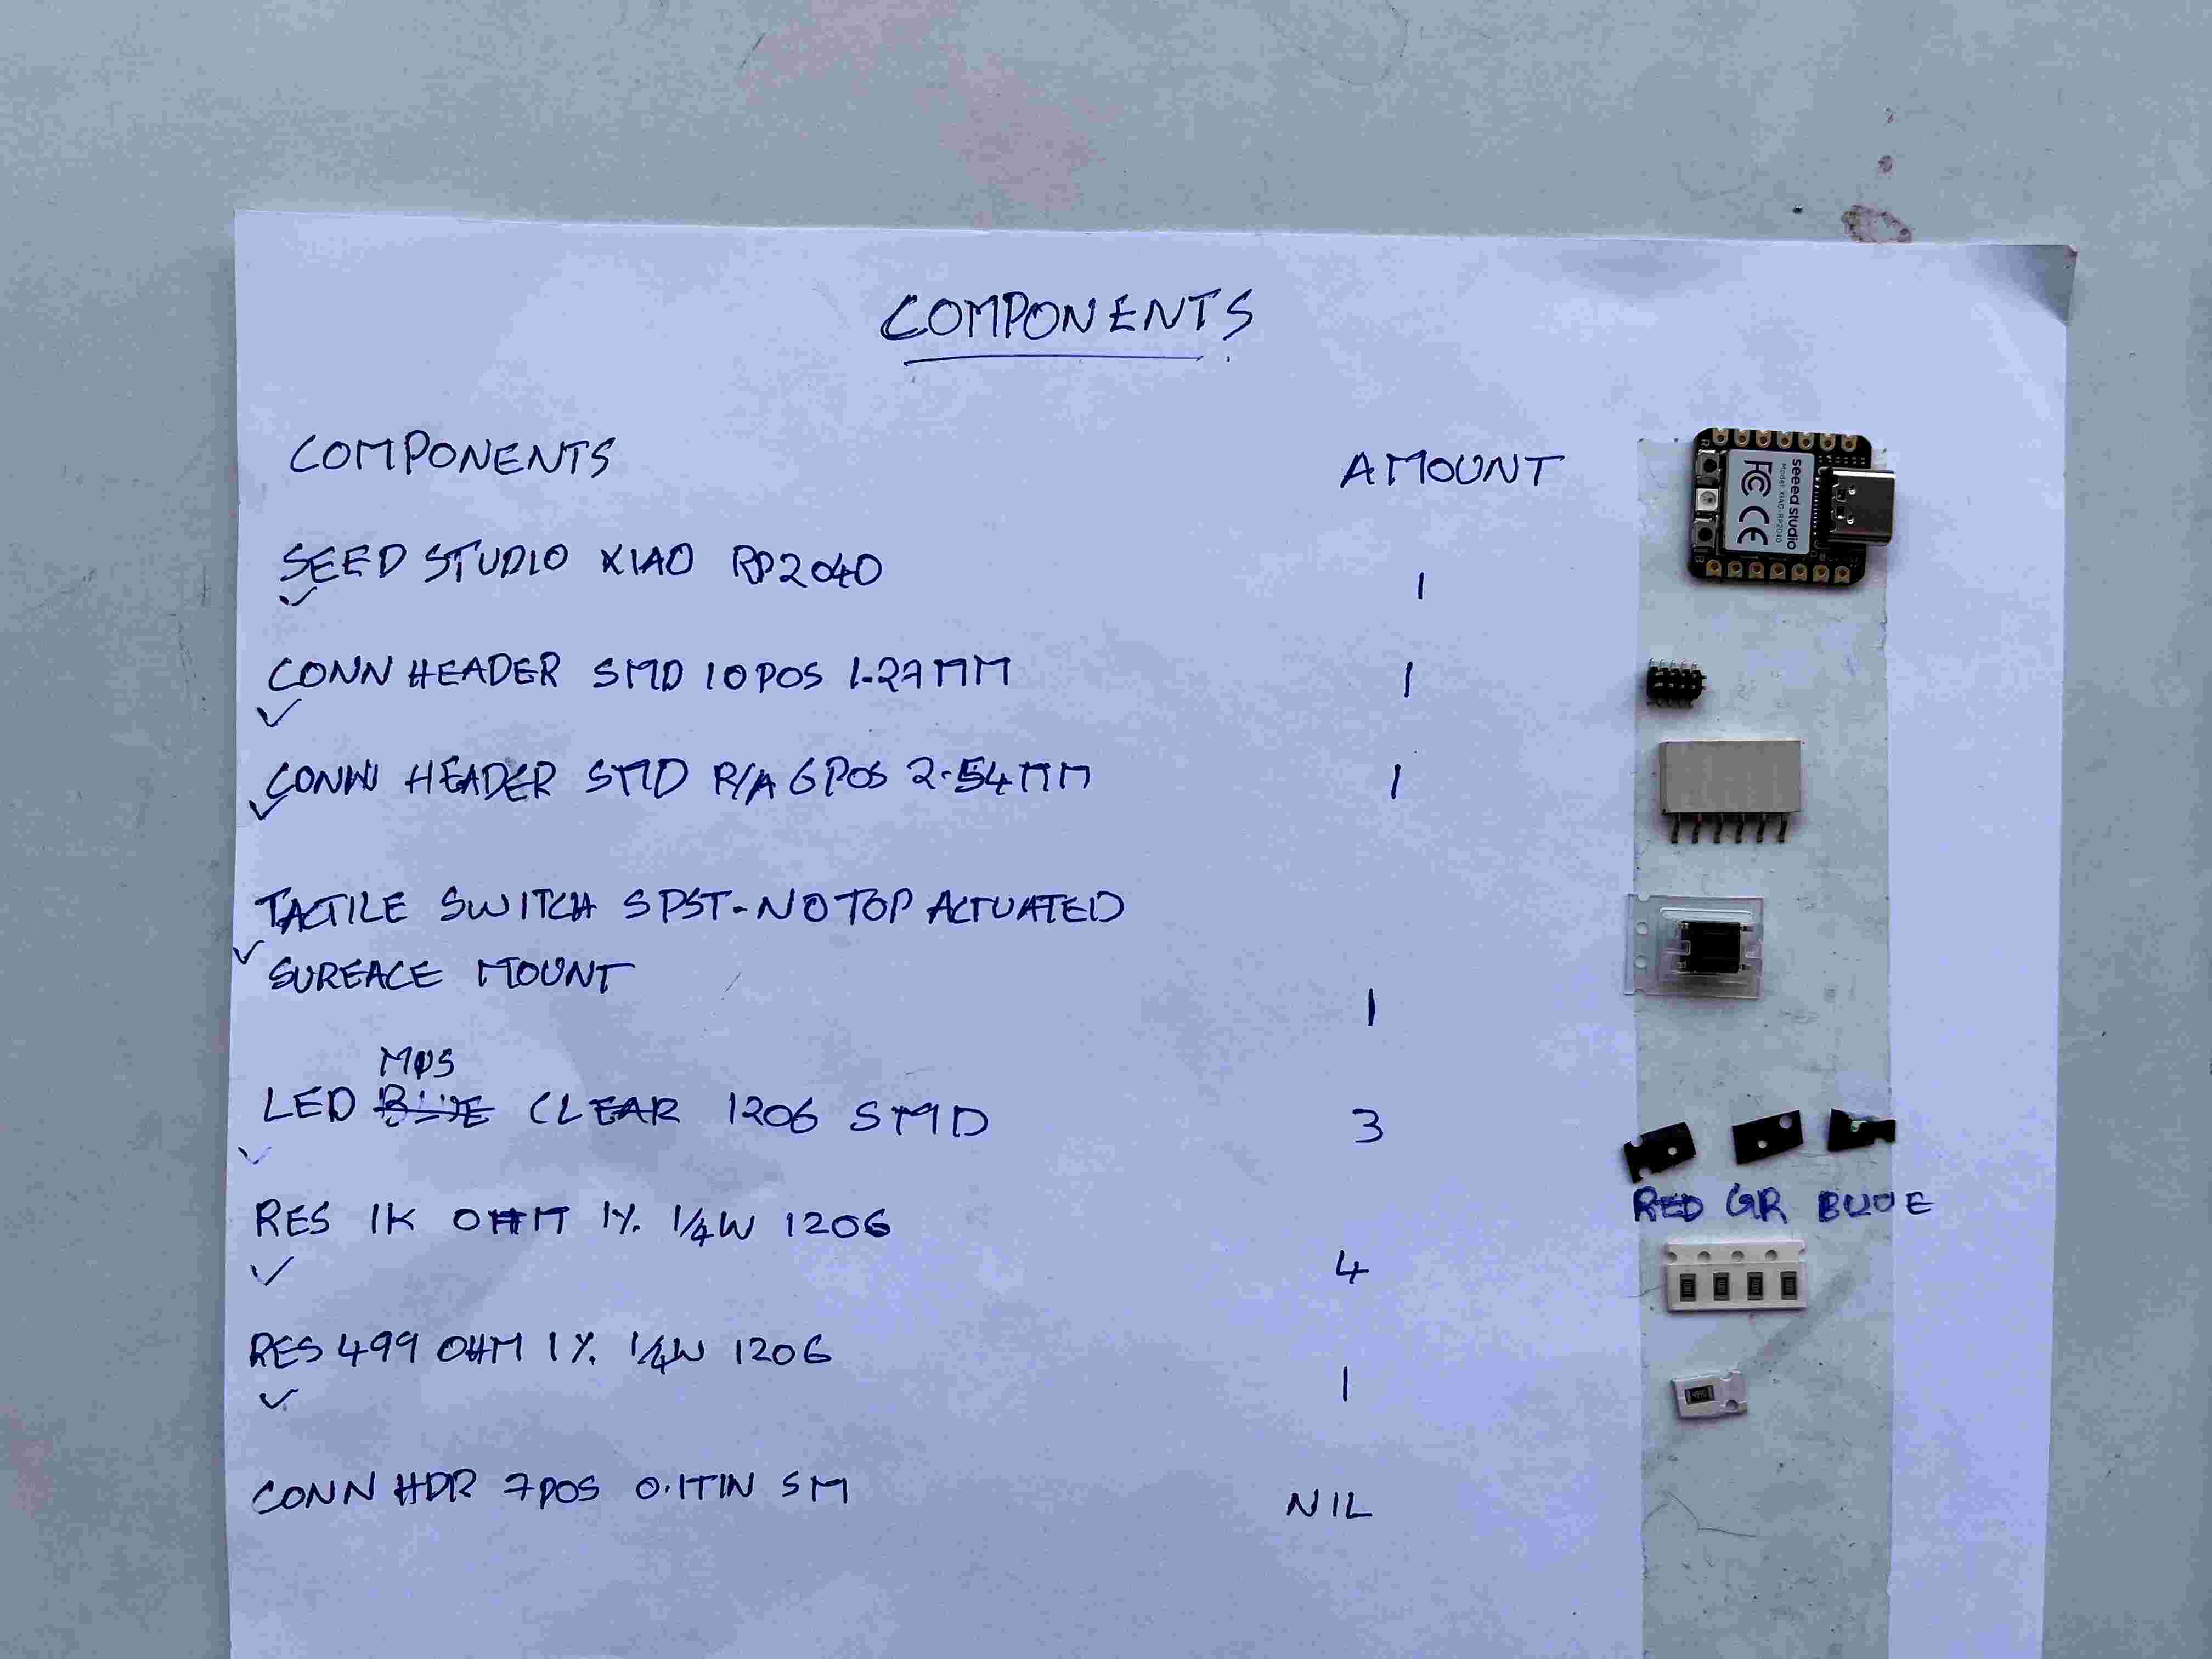 COMPONENTS
COMPONENTS AMOUNT
seeed studio
Model: XIAO-RP2040
FC CE
SEED STUDIO XIAO RP2040 1
CONN HEADER SMD 10 POS 1.27MM 1
CONN HEADER SMD R/A 6 POS 2.54MM 1
TACTILE SWITCH SPST-NO TOP ACTUATED
SUREACE MOUNT 1
LED CLEAR 1206 SMD 3
RED GR BLUE
RES 1K OHM 1% 1/4W 1206 4
RES 499 OHM 1% 1/4W 1206 1
CONN HDR 7POS 0.1TIN SM NIL